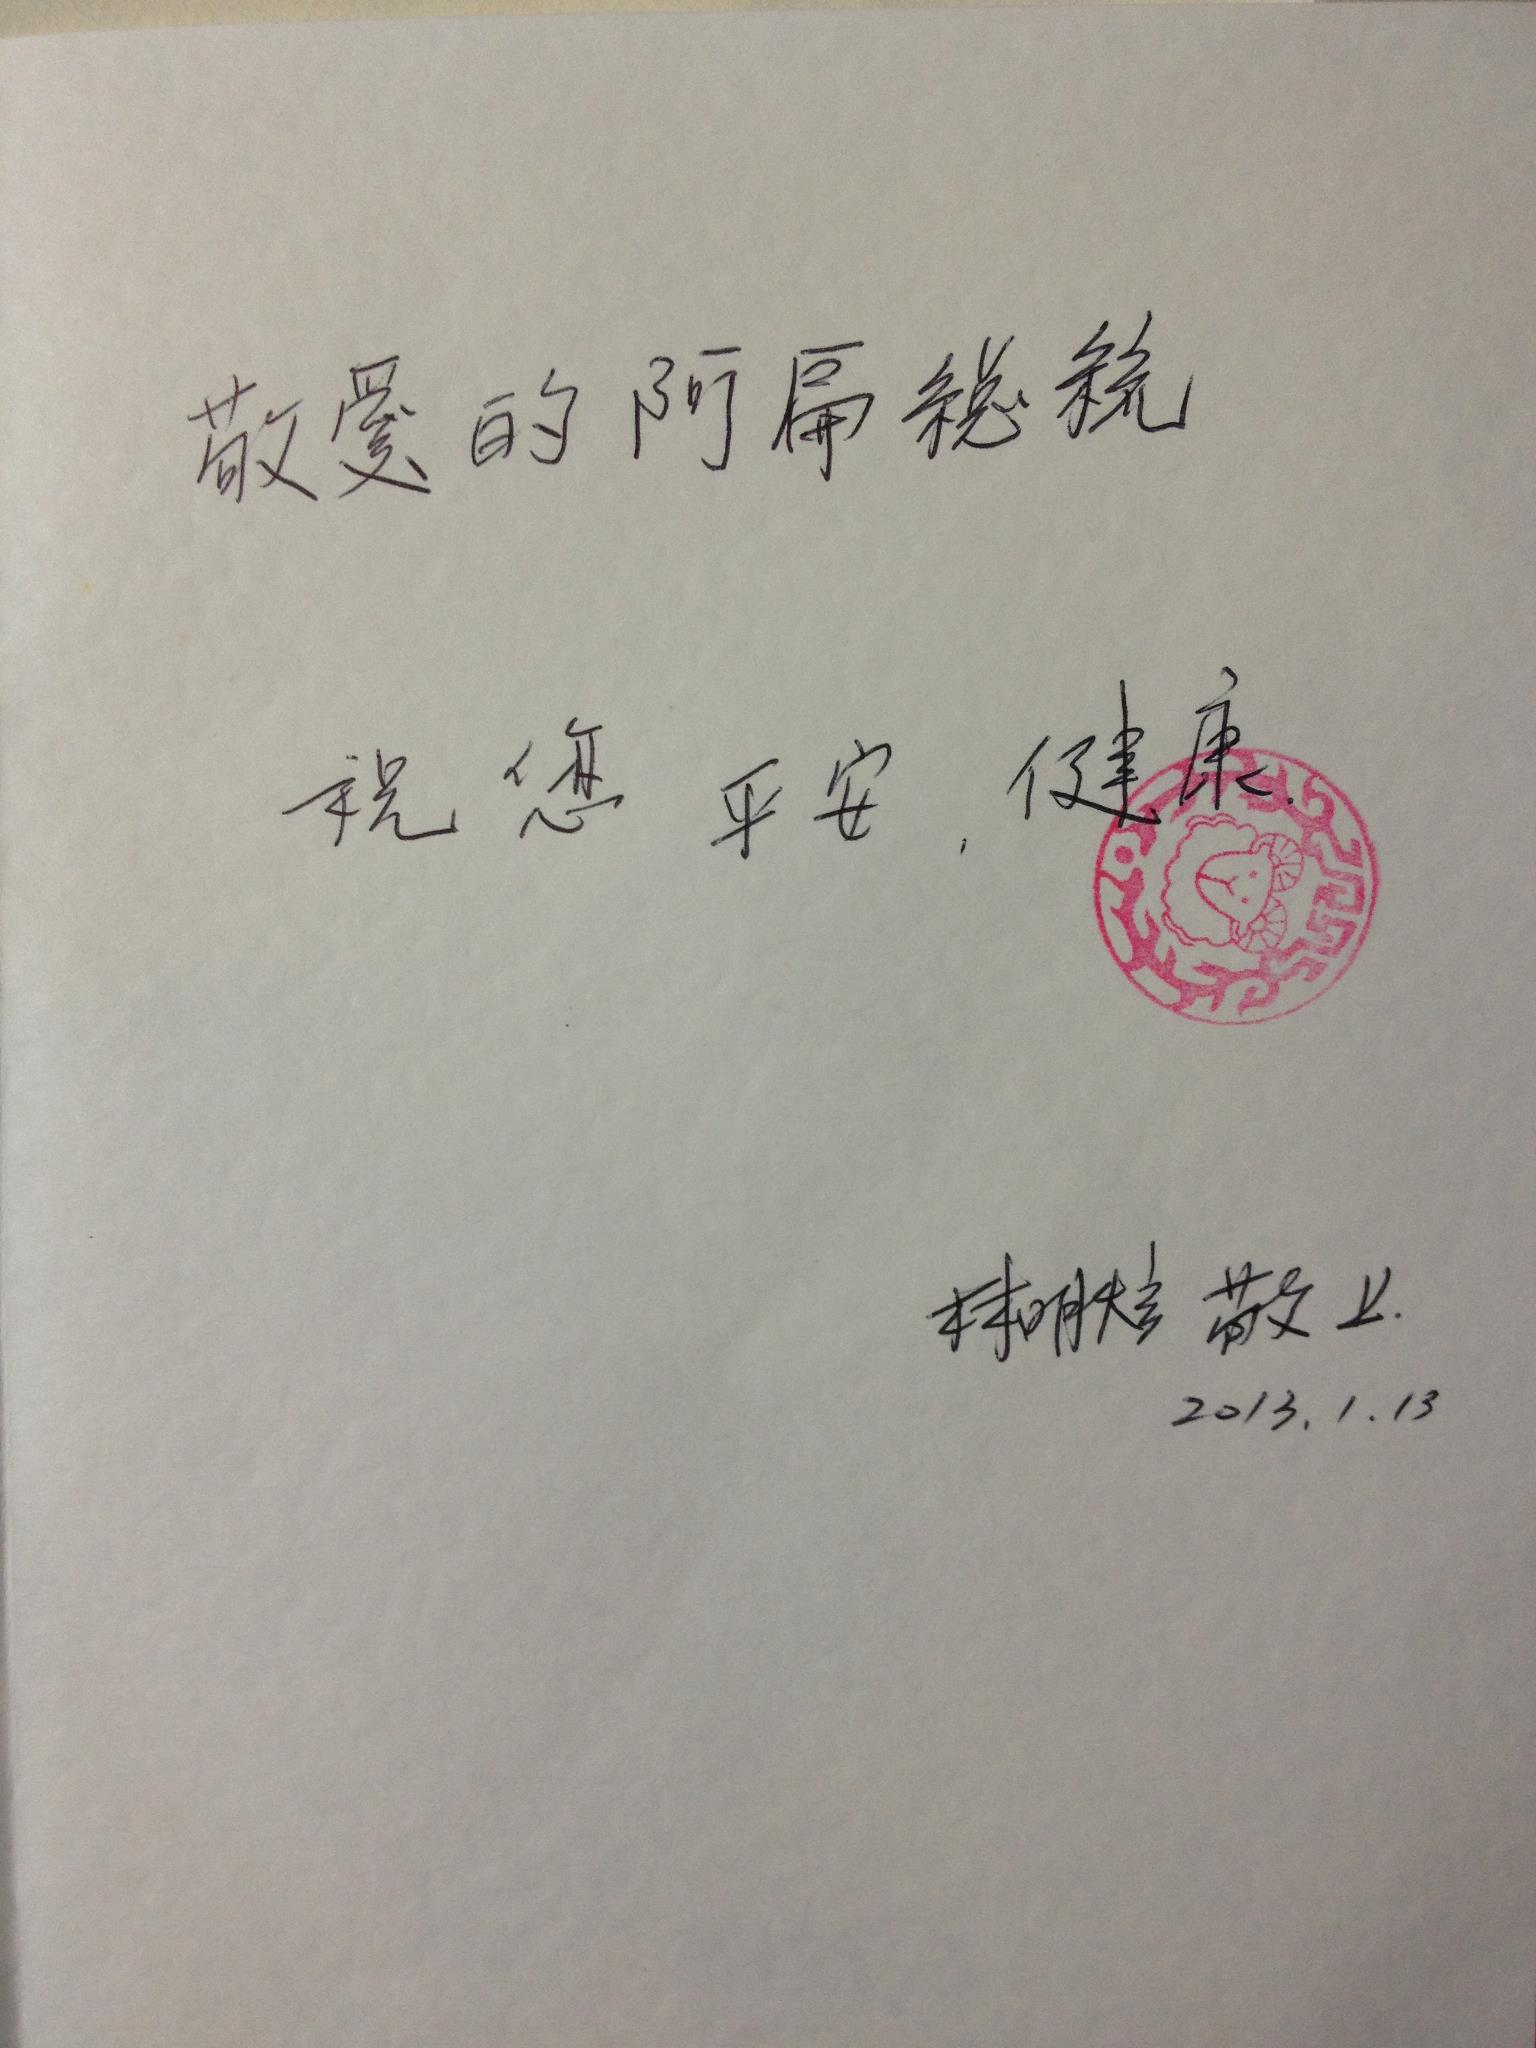 敬愛的阿扁總統
祝您平安,健康.
林明炫 敬上.
2013.1.13